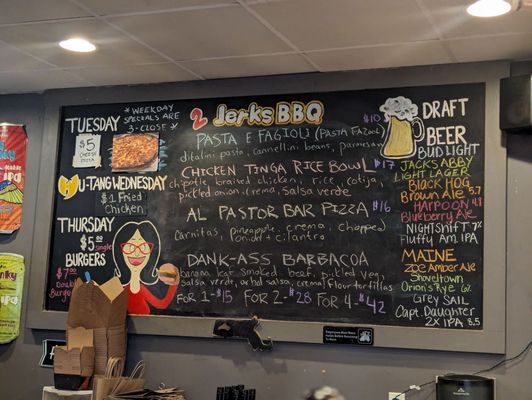 * WEEKDAY
SPECIALS ARE
3-CLOSE *
TUESDAY
$5
CHEESE
PIZZA
U-TANG WEDNESDAY
$1 FRIED
CHICKEN
THURSDAY
$5 Single
BURGERS
$7.00
Double
2 Jerks BBQ
PASTA E FAGIOLI (PASTA FAZOOL)
ditalini pasta, cannellini beans, parmesan
$10
CHICKEN TINGA RICE BOWL $17
chipotle braised chicken, rice, cotija,
pickled onion, crema, salsa verde
AL PASTOR BAR PIZZA $16
Carnitas, pineapple, crema, chopped
onion & cilantro
DANK-ASS BARBACOA
banana leaf smoked beef, pickled veg,
salsa verde, arbol salsa, crema, flour tortillas
FOR 1-$15 FOR 2-$28 FOR 4-$42
DRAFT
BEER
BUD LIGHT
JACK'S ABBY
LIGHT LAGER
BLACK HOG
Brown Ale 5.7
HARPOON 4.8
Blueberry Ale
NIGHTSHIFT 7%
Fluffy Am. IPA
MAINE
Zoe Amber Ale
Shoveltown
Orion's Rye
GREY SAIL
Capt. Daughter
2X IPA 8.5